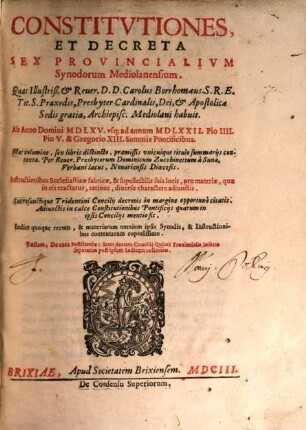 CONSTITVTIONES,
ET DECRETA
SEX PROVINCIALIVM
Synodorum Mediolanensium.
Quas Illustriss. & Reuer. D. D. Carolus Borrhomæus. S. R. E.
Tit. S. Praxedis, Presbyter Cardinalis, Dei, & Apostolicæ
Sedis gratia, Archiepisc. Mediolani habuit.
Ab Anno Domini MDLXV. vsq; ad annum MDLXXXII. Pio IIII.
Pio V. & Gregorio XIII. Summis Pontificibus.
seu libris distincte, præmissis vnicuique titulo summarijs
Per Reuer. Presbyterum Dominicum Zucchinettum à Suna,
Verbani lacus, Nouariensis Diœcesis.
Instructionibus Ecclesiasticæ fabricæ, & supellectilis suis locis, pro materia, quæ
in eis tractatur, ratione, diuerso charactere adiunctis.
Tridentini Concilij decretis in margine opportunè citatis.
Adiunctis in calce Constitutionibus Pontificijs quarum in
ipsis Concilijs mentio fit.
Index quoque rerum, & materiarum omnium ipsis Synodis, & Instructioni-
bus contentarum copiosissimo.
BRIXIAE, Apud Societatem Brixiensem. MDCIII.
De Consensu Superiorum.